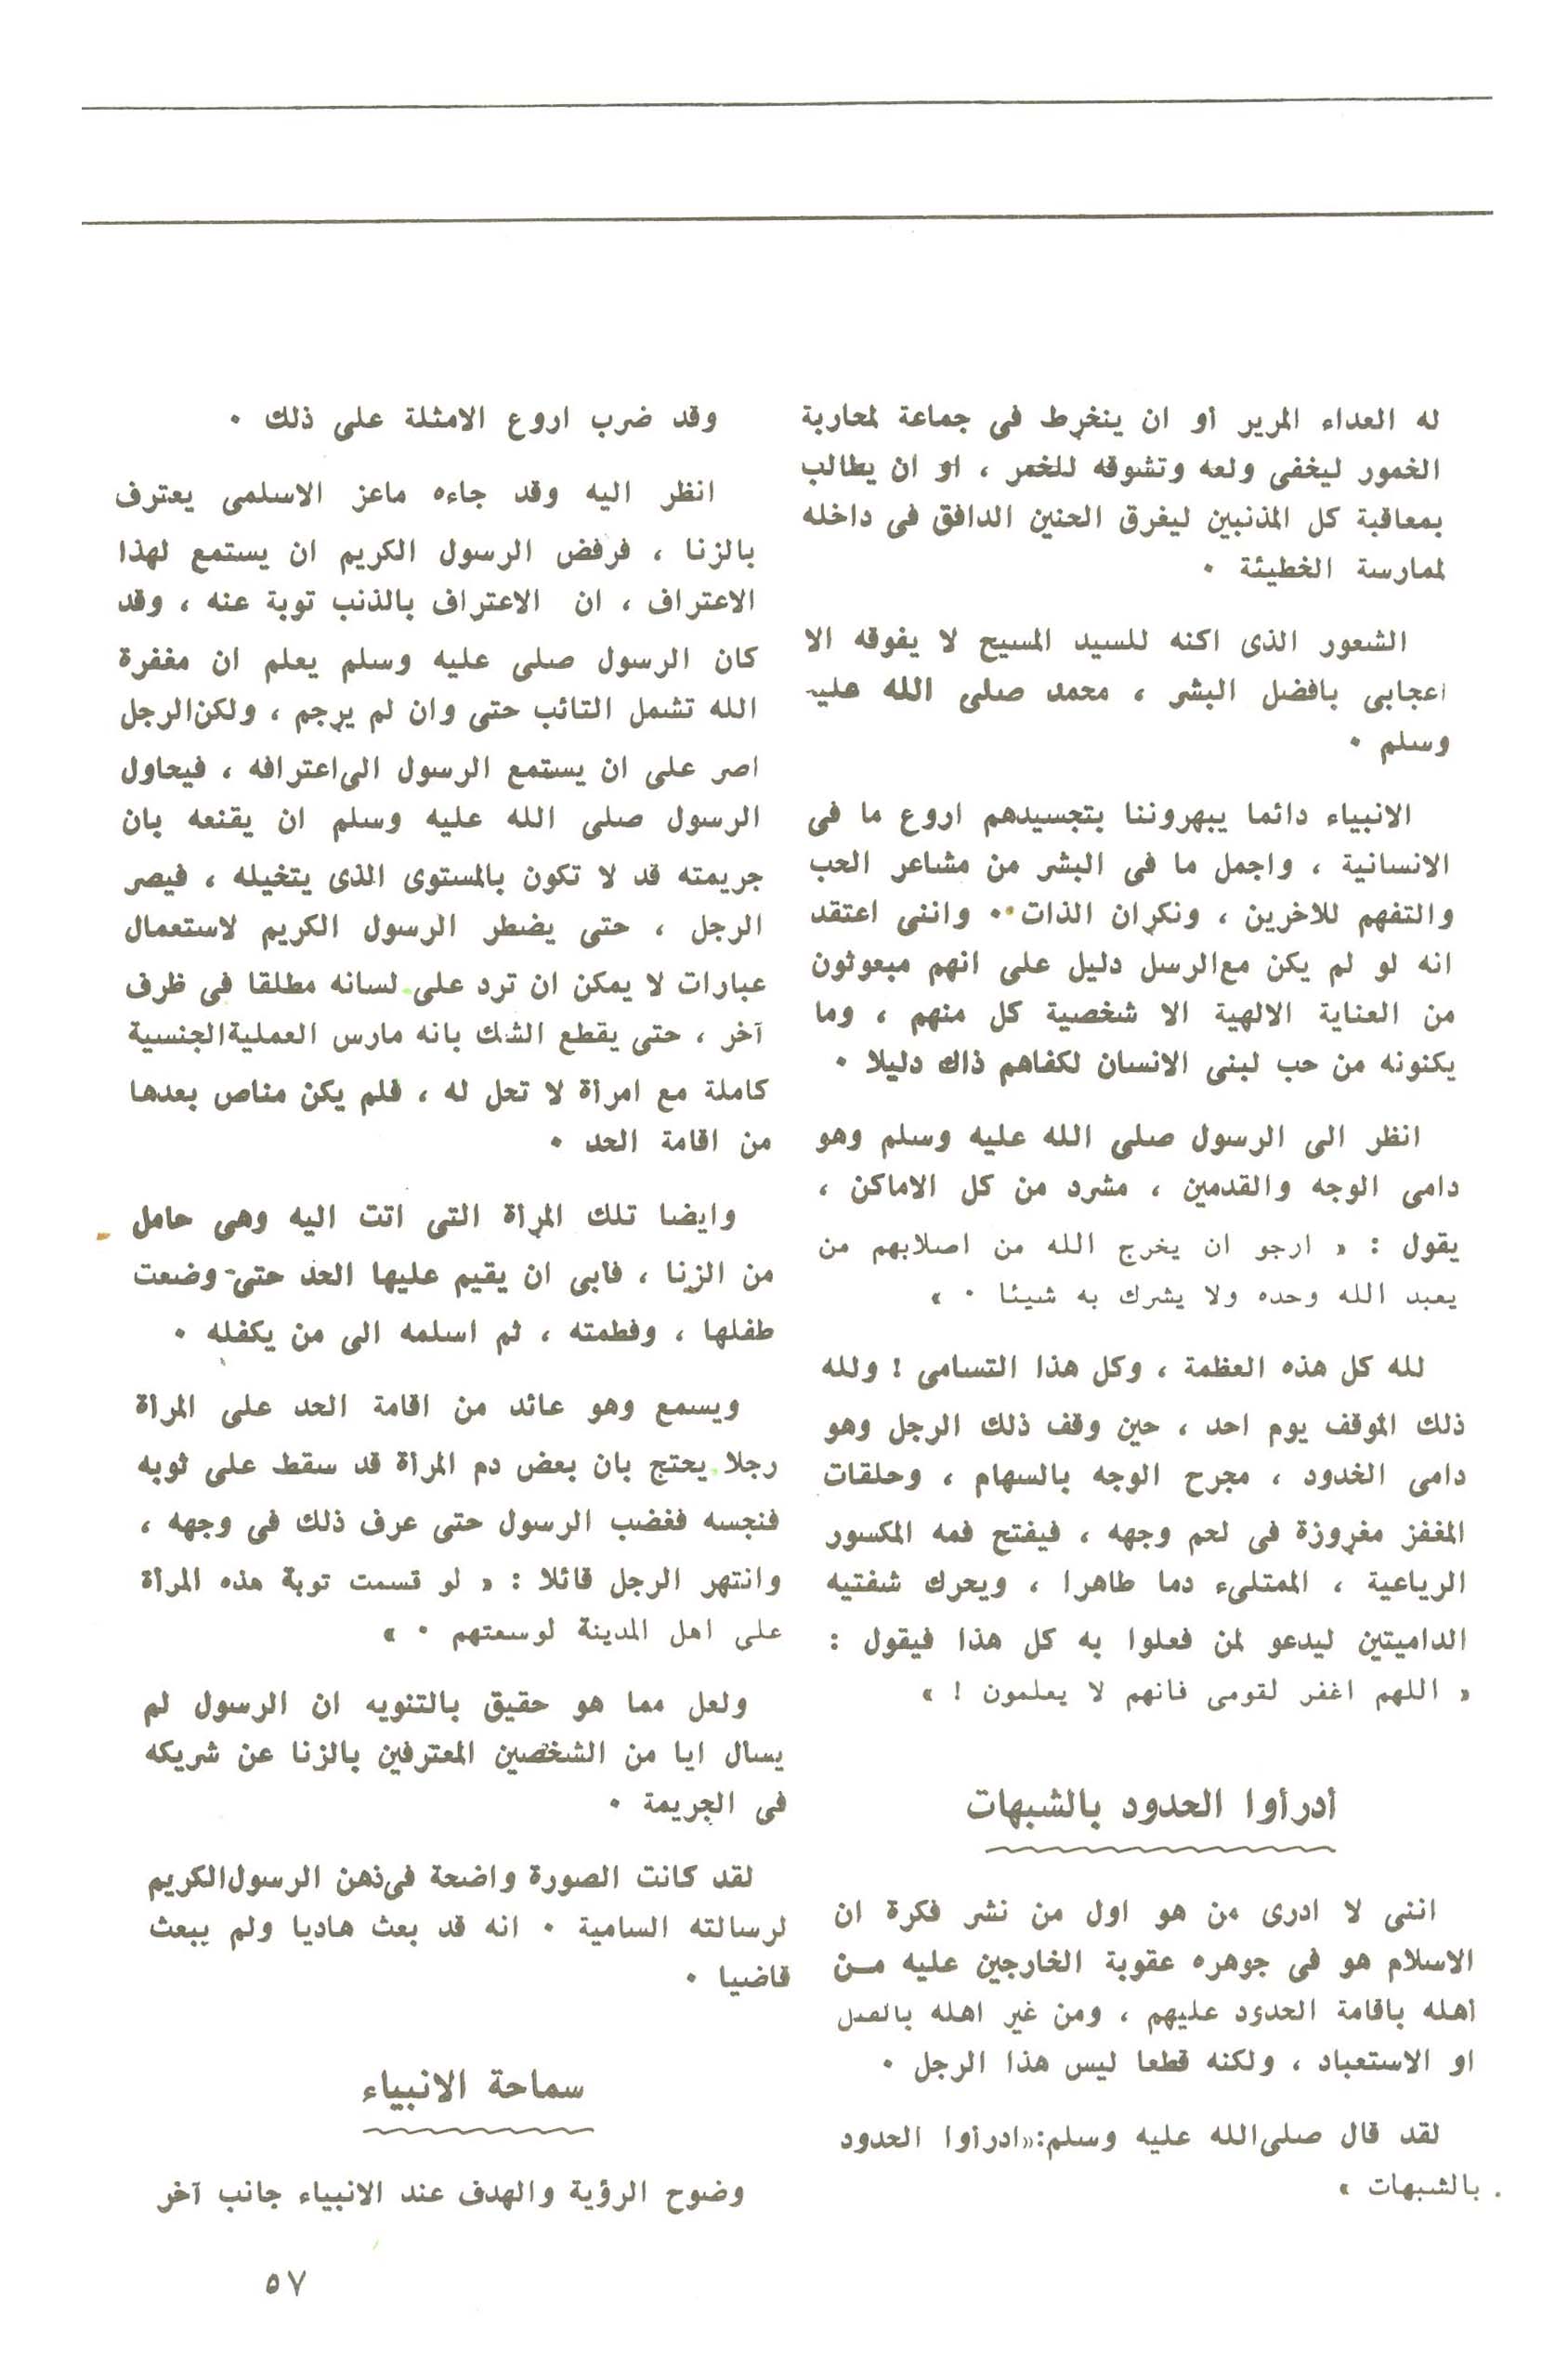 له العداء المرير أو ان ينخرط فى جماعة لمحاربة
الخمور ليخفى ولعه وتشوقه للخمر ، او ان يطالب
بمعاقبة كل المذنبين ليغرق الحنين الدافق فى داخله
لممارسة الخطيئة ٠
الشعور الذى اكنه للسيد المسيح لا يفوقه الا
اعجابى بافضل البشر ، محمد صلى الله عليه
وسلم ٠
الانبياء دائما يبهروننا بتجسيدهم اروع ما فى
الانسانية ، واجمل ما فى البشر من مشاعر الحب
والتفهم للاخرين ، ونكران الذات ٠٠ واننى اعتقد
انه لو لم يكن مع الرسل دليل على انهم مبعوثون
من العناية الالهية الا شخصية كل منهم ، وما
يكنونه من حب لبنى الانسان لكفاهم ذاك دليلا ٠
انظر الى الرسول صلى الله عليه وسلم وهو
دامى الوجه والقدمين ، مشرد من كل الاماكن ،
يقول : « ارجو ان يخرج الله من اصلابهم من
يعبد الله وحده ولا يشرك به شيئا ٠ »
لله كل هذه العظمة ، وكل هذا التسامى ! ولله
ذلك الموقف يوم احد ، حين وقف ذلك الرجل وهو
دامى الخدود ، مجرح الوجه بالسهام ، وحلقات
المغفز مغروزة فى لحم وجهه ، فيفتح فمه المكسور
الرباعية ، الممتلىء دما طاهرا ، ويحرك شفتيه
الداميتين ليدعو لمن فعلوا به كل هذا فيقول :
« اللهم اغفر لقومى فانهم لا يعلمون ! »
أدرأوا الحدود بالشبهات
اننى لا ادرى من هو اول من نشر فكرة ان
الاسلام هو فى جوهره عقوبة الخارجين عليه مـن
اهله باقامة الحدود عليهم ، ومن غير اهله بالقتل
او الاستعباد ، ولكنه قطعا ليس هذا الرجل ٠
لقد قال صلى الله عليه وسلم:«ادرأوا الحدود
بالشبهات »
وقد ضرب اروع الامثلة على ذلك ٠
انظر اليه وقد جاءه ماعز الاسلمى يعترف
بالزنا ، فرفض الرسول الكريم ان يستمع لهذا
الاعتراف ، ان الاعتراف بالذنب توبة عنه ، وقد
كان الرسول صلى عليه وسلم يعلم ان مغفرة
الله تشمل التائب حتى وان لم يرجم ، ولكن الرجل
اصر على ان يستمع الرسول الى اعترافه ، فيحاول
الرسول صلى الله عليه وسلم ان يقنعه بان
جريمته قد لا تكون بالمستوى الذى يتخيله ، فيصر
الرجل ، حتى يضطر الرسول الكريم لاستعمال
عبارات لا يمكن ان ترد على لسانه مطلقا فى ظرف
آخر ، حتى يقطع الشك بانه مارس العملية الجنسية
كاملة مع امرأة لا تحل له ، فلم يكن مناص بعدها
من اقامة الحد ٠
وايضا تلك المرأة التى اتت اليه وهى حامل
من الزنا ، فأبى ان يقيم عليها الحد حتى وضعت
طفلها ، وفطمته ، ثم اسلمه الى من يكفله ٠
ويسمع وهو عائد من اقامة الحد على المرأة
رجلا يحتج بان بعض دم المرأة قد سقط على ثوبه
فنجسه فغضب الرسول حتى عرف ذلك فى وجهه ،
وانتهر الرجل قائلا : « لو قسمت توبة هذه المرأة
على اهل المدينة لوسعتهم ٠ »
ولعل مما هو حقيق بالتنويه ان الرسول لم
يسال ايا من الشخصين المعترفين بالزنا عن شريكه
فى الجريمة ٠
لقد كانت الصورة واضحة فى ذهن الرسول الكريم
لرسالته السامية ٠ انه قد بعث هاديا ولم يبعث
قاضيا ٠
سماحة الانبياء
وضوح الرؤية والهدف عند الانبياء جانب آخر
٥٧